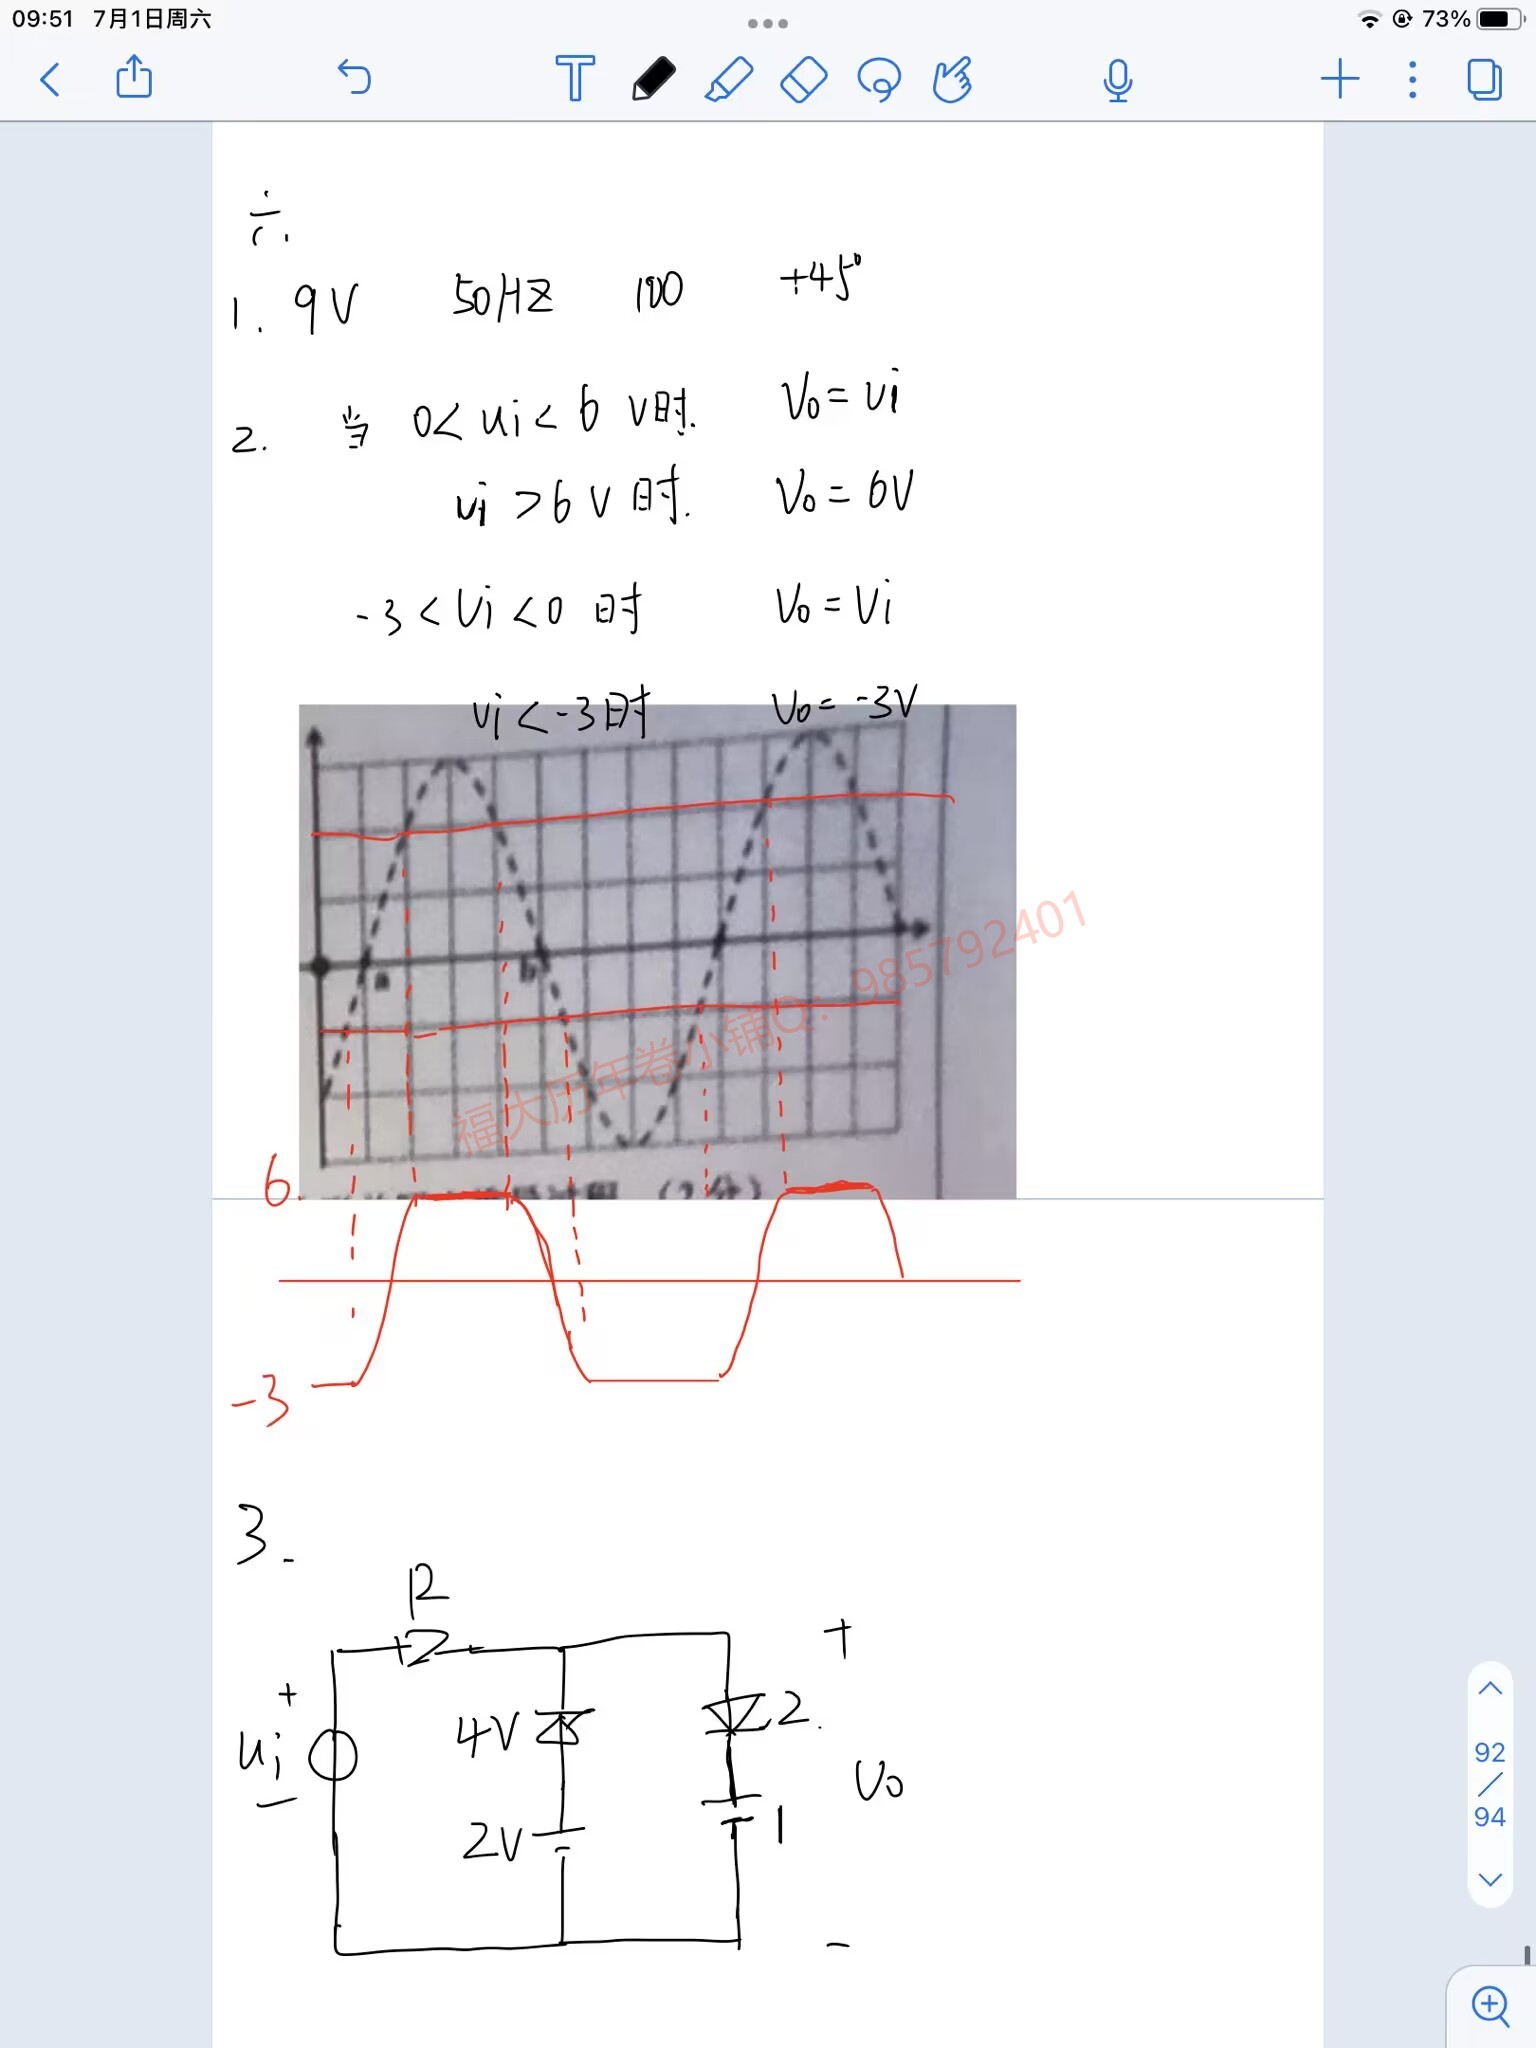 09:51 7月1日周六
73%
六.
1. 9V 50HZ 100 +45°
2. 当 0< ui < 6 V时. Vo = ui
ui >6 V时. Vo = 6V
-3 < Vi < 0 时 Vo = Vi
ui < -3时 Vo = -3V
a
b
福大历年卷小铺Q：985792401
(2分)
6.
-3
3.
R
+
+
4V
2.
ui
Vo
92
/
94
2V
1
-
-